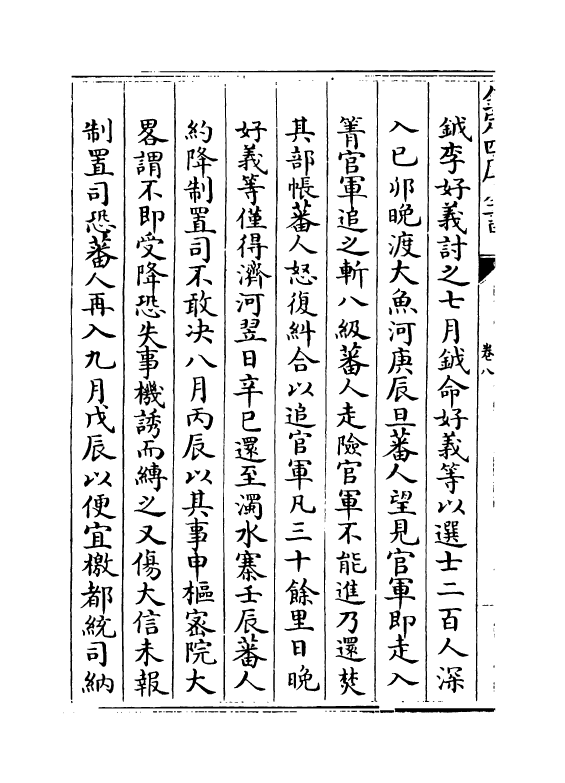 鉞李好義討之七月鉞命好義等以選士二百人深
入已卯晚渡大魚河庚辰旦蕃人望見官軍即走入
箐官軍追之斬八級蕃人走險官軍不能進乃還焚
其部帳蕃人怒復糾合以追官軍凡三十餘里日晚
好義等僅得濟河翌日辛巳還至濁水寨壬辰蕃人
約降制置司不敢决八月丙辰以其事申樞密院大
畧謂不即受降恐失事機誘而縛之又傷大信未報
制置司恐蕃人再入九月戊辰以便宜檄都統司納
卷八